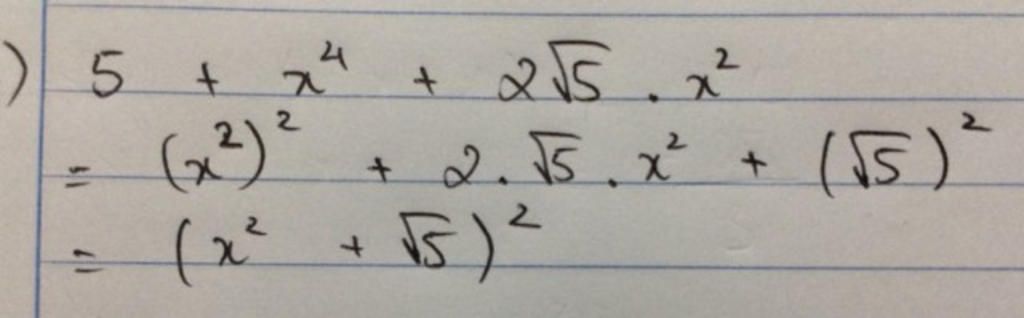 ) 5 + x⁴ + 2√5 . x²
= (x²)² + 2 . √5 . x² + (√5)²
= (x² + √5)²